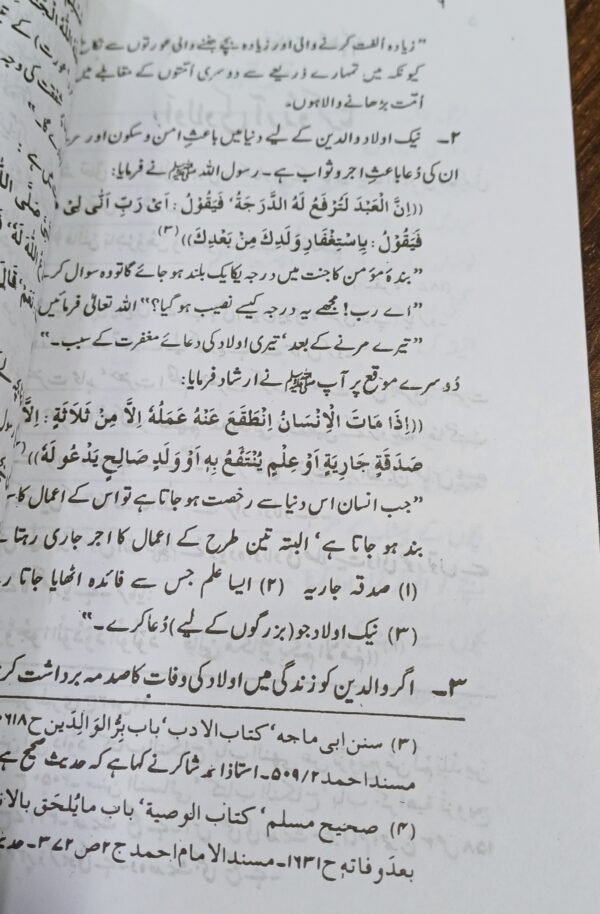 ۶
”زیادہ الفت کرنے والی اور زیادہ بچے جننے والی عورتوں سے نکاح
کیونکہ میں تمہارے ذریعے سے دوسری امتوں کے مقابلے میں
اُمت بڑھانے والا ہوں۔
۲۔ نیک اولاد والدین کے لیے دنیا میں باعثِ امن و سکون اور
ان کی دُعا باعثِ اجر و ثواب ہے۔ رسول اللہ ﷺ نے فرمایا:
((اِنَّ الْعَبْدَ لَتُرْفَعُ لَهُ الدَّرَجَةُ، فَيَقُوْلُ: اَىْ رَبِّ اَنّٰى لِىْ
فَيَقُوْلُ: بِاسْتِغْفَارِ وَلَدِكَ مِنْ بَعْدِكَ)) (۳)
”بندۂ مؤمن کا جنت میں درجہ یکایک بلند ہو جائے گا تو وہ سوال کر
”اے رب! مجھے یہ درجہ کیسے نصیب ہو گیا؟“ اللہ تعالیٰ فرمائیں
”تیرے مرنے کے بعد، تیری اولاد کی دعائے مغفرت کے سبب۔“
دُوسرے موقع پر آپ ﷺ نے ارشاد فرمایا:
((اِذَا مَاتَ الْاِنْسَانُ اِنْطَقَعَ عَنْهُ عَمَلُهٗ اِلاَّ مِنْ ثَلاَثَةٍ: اِلاَّ
صَدَقَةٍ جَارِيَةٍ اَوْ عِلْمٍ يُنْتَفَعُ بِهٖ اَوْ وَلَدٍ صَالِحٍ يَدْعُوْ لَهٗ))
”جب انسان اس دنیا سے رخصت ہو جاتا ہے تو اس کے اعمال کا
بند ہو جاتا ہے، البتہ تین طرح کے اعمال کا اجر جاری رہتا
(۱) صدقہ جاریہ (۲) ایسا علم جس سے فائدہ اٹھایا جاتا
(۳) نیک اولاد جو (بزرگوں کے لیے) دُعا کرے۔“
۳۔ اگر والدین کو زندگی میں اولاد کی وفات کا صدمہ برداشت کر
(۳) سنن ابی ماجہ، کتاب الادب، باب بِرُّ الوَالِدَین ح
مسند احمد ۵۰۹/۲۔ استاذ احمد شاکر نے کہا ہے کہ حدیث صحیح ہے
(۴) صحیح مسلم، کتاب الوصیة، باب مَا یُلحَق
بعدَ وفاتِهٖ ح ۱۶۳۱۔ مسند الامام احمد ج ۲ ص ۳۷۲۔